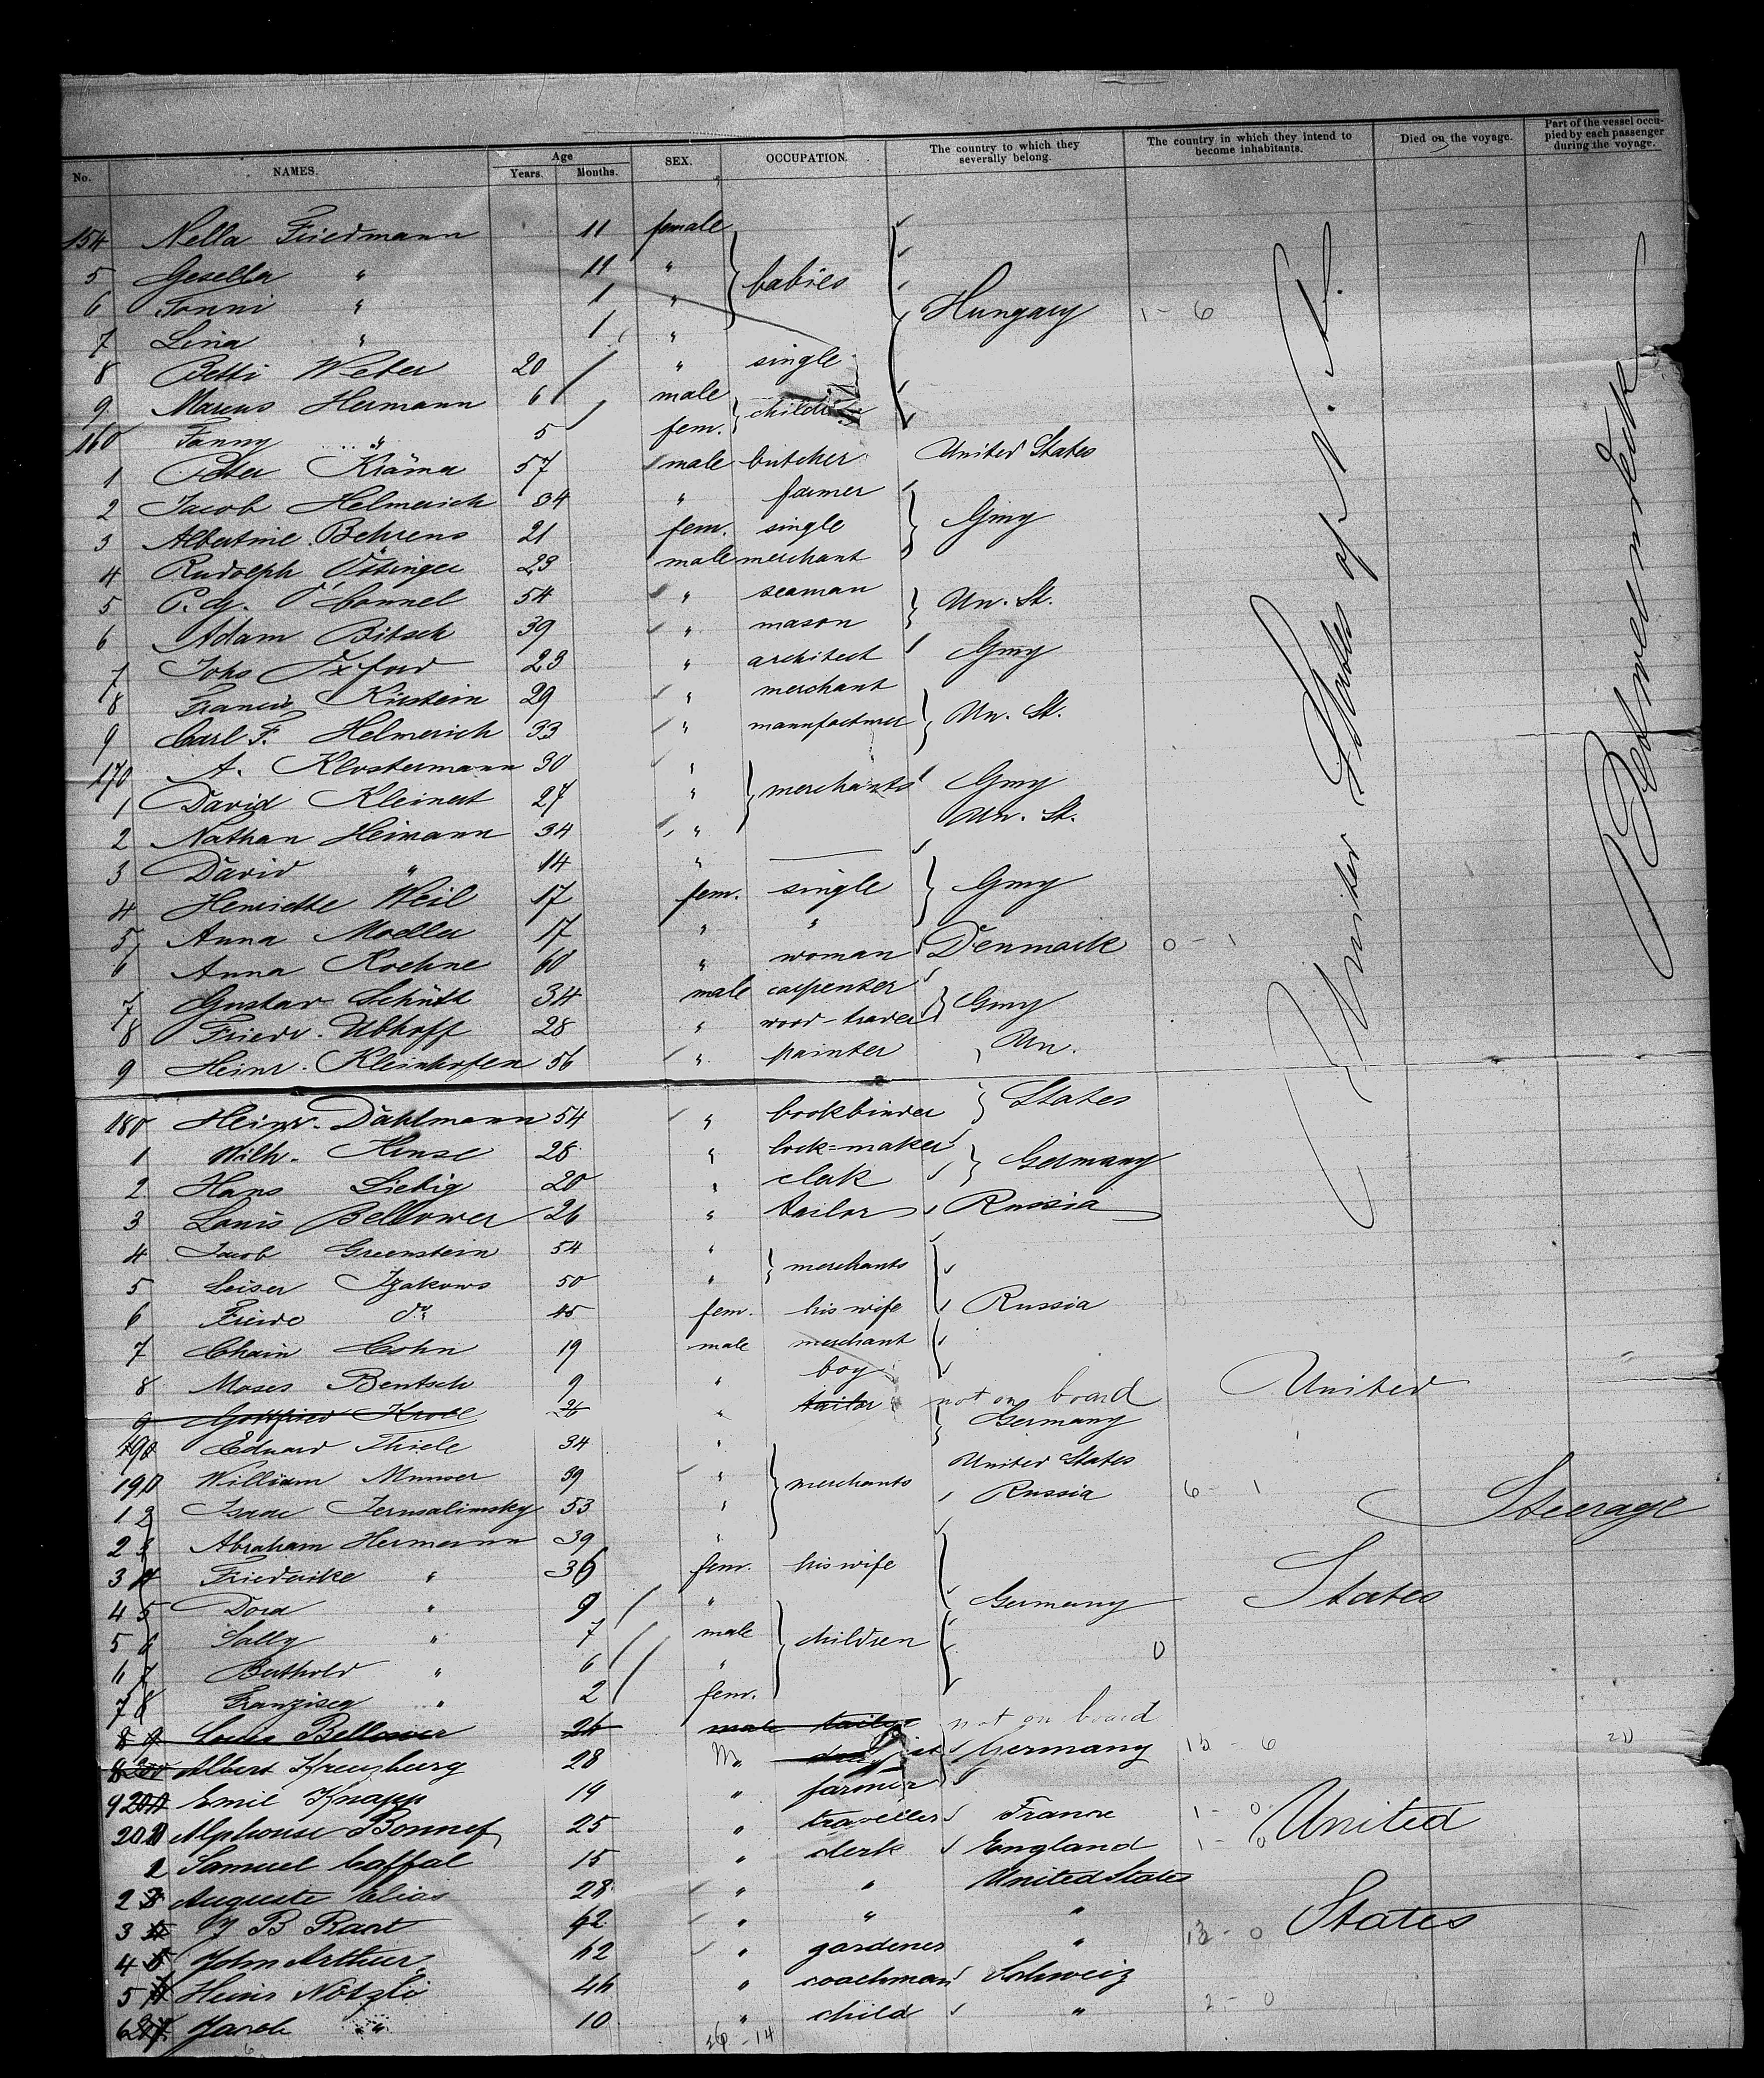 No. NAMES. Age Years. Months. SEX. OCCUPATION. The country to which they severally belong. The country in which they intend to become inhabitants. Died on the voyage. Part of the vessel occupied by each passenger during the voyage.
154 Nella Friedmann 11 female
5 Gesella " 11 " babies
6 Tonni " 1 "
7 Lina " 1 " Hungary 1 - 6
8 Betti Weber 20 " single
9 Marcus Hermann 6 male
160 Fanny " 5 fem. children
1 Peter Krämer 57 male butcher United States
2 Jacob Helmerich 34 " farmer
3 Albertine Behrens 21 fem. single Gmy
4 Rudolph Ottinger 23 male merchant
5 P. G. O'Connel 54 " seaman Un. St.
6 Adam Bitsch 39 " mason
7 Johs Oxford 23 " architect Gmy
8 Francis Kirstein 29 " merchant
9 Carl F. Helmerich 33 " manufacturer Un. St.
170 A. Klostermann 30 "
1 David Kleinert 27 " merchants Gmy
2 Nathan Heimann 34 " Un. St.
3 David " 14 "
4 Henriette Weil 17 fem. single Gmy
5 Anna Moeller 17 " "
6 Anna Koehne 60 " woman Denmark 0 - 1
7 Gustav Schütt 34 male carpenter Gmy
8 Friedr. Ubhoff 28 " wood-trader
9 Heinr. Kleinhofen 56 " painter Un.
180 Heinr. Dahlmann 54 " bookbinder States
1 Wilh. Hense 28 " lock=maker
2 Hans Liebig 20 " clerk Germany
3 Louis Bellower 26 " tailor Russia
4 Jacob Greenstein 54 "
5 Leiser Izakows 50 " merchants
6 Friede do. 45 fem. his wife Russia
7 Chain Cohn 19 male merchant
8 Moses Bentsch 9 " boy
9 Gottfried Kroll 26 " tailor not on board
190 Eduard Thiele 34 " Germany
190 William Munver 39 " merchants United States
1 2 Isaac Jerusalimsky 53 " Russia 6 - 1
2 3 Abraham Hermann 39 "
3 4 Friederike " 36 fem. his wife
4 5 Dora " 9 " Germany
5 6 Sally " 7 male children 0
6 7 Berthold " 6 "
7 8 Franzisca " 2 fem.
8 9 Louis Bellower 26 male tailor not on board
8 200 Albert Kreuzburg 28 M. Germany 15 - 6
9 Emil Knapp 19 " farmer
Alphonse Bonnef 25 " traveller France 1 - 0
Samuel Caffal 15 " clerk England 1 - 0
2 3 Auguste Elias 28 " " United States
3 4 J B Bart 42 " " "
4 5 John Arthur 62 " gardener " 13 - 0
5 Heinr Nötzli 46 " coachman Schweiz
6 Jacob " 10 " child " 2 - 0
36 - 14
United States of N. A.
Between deck
United
States
Steerage
United
States